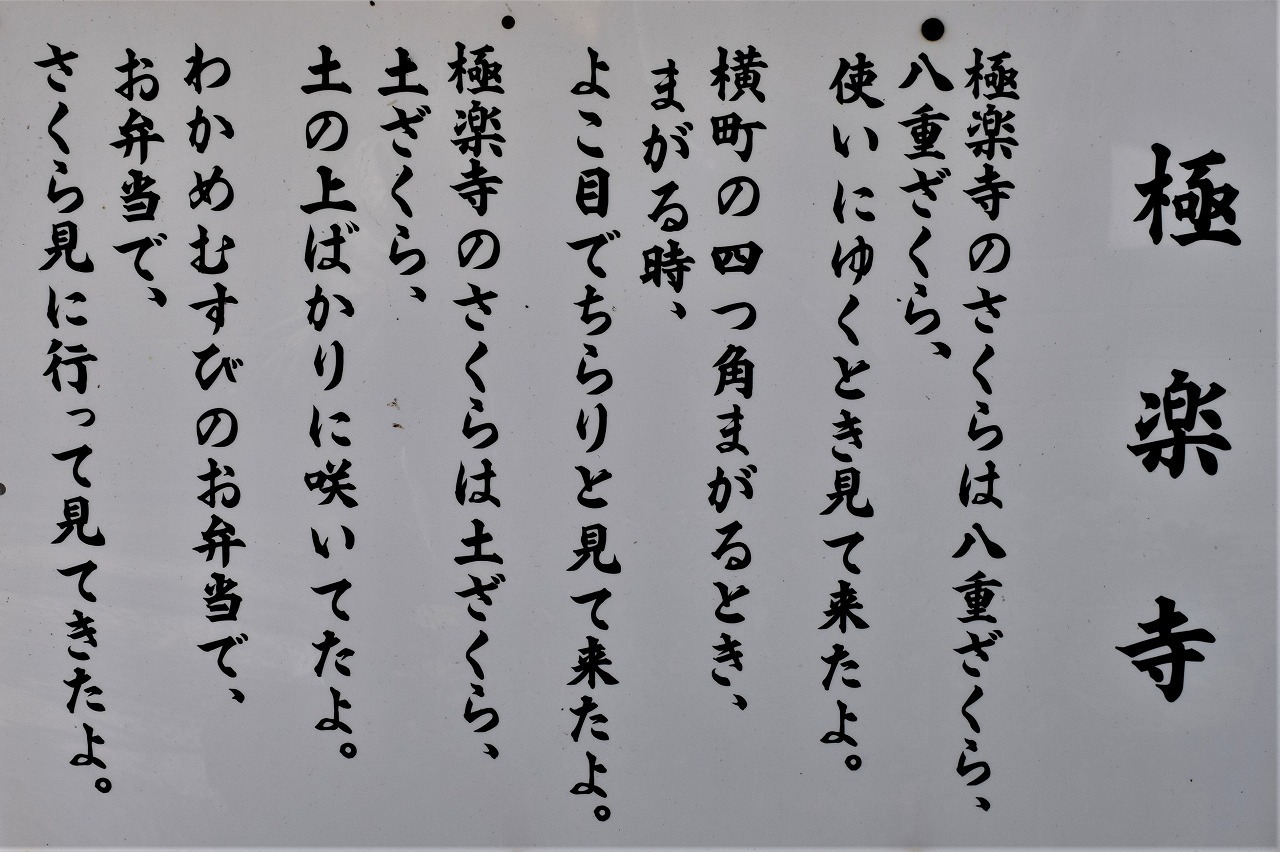 極楽寺
極楽寺のさくらは八重ざくら、
八重ざくら、
使いにゆくとき見て来たよ。
横町の四つ角まがるとき、
まがる時、
よこ目でちらりと見て来たよ。
極楽寺のさくらは土ざくら、
土ざくら、
土の上ばかりに咲いてたよ。
わかめむすびのお弁当で、
お弁当で、
さくら見に行って見てきたよ。